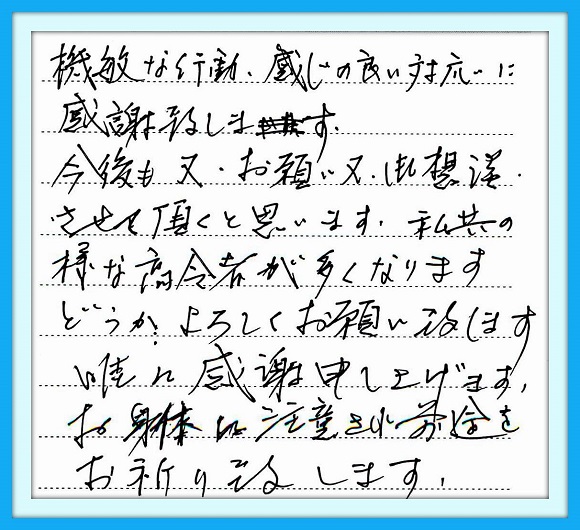 機敏な行動、感じの良い対応いに
感謝致しますす。
今後も又、お願い又、御想談、
させて頂くと思います。私共の
様な高令者が多くなります
どうか、よろしくお願い致します
唯に感謝申し上げます。
お身体に注意され前途を
お祈り致します。